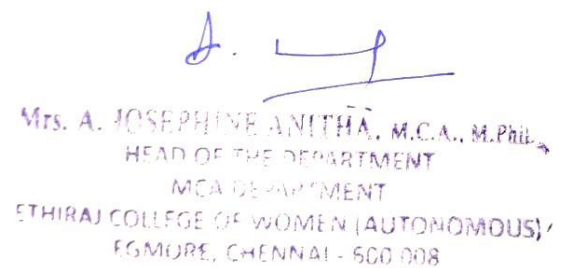 Mrs. A. JOSEPHINE ANITHA, M.C.A., M.Phil.,
HEAD OF THE DEPARTMENT
MCA DEPARTMENT
ETHIRAJ COLLEGE OF WOMEN (AUTONOMOUS),
EGMORE, CHENNAI - 600 008